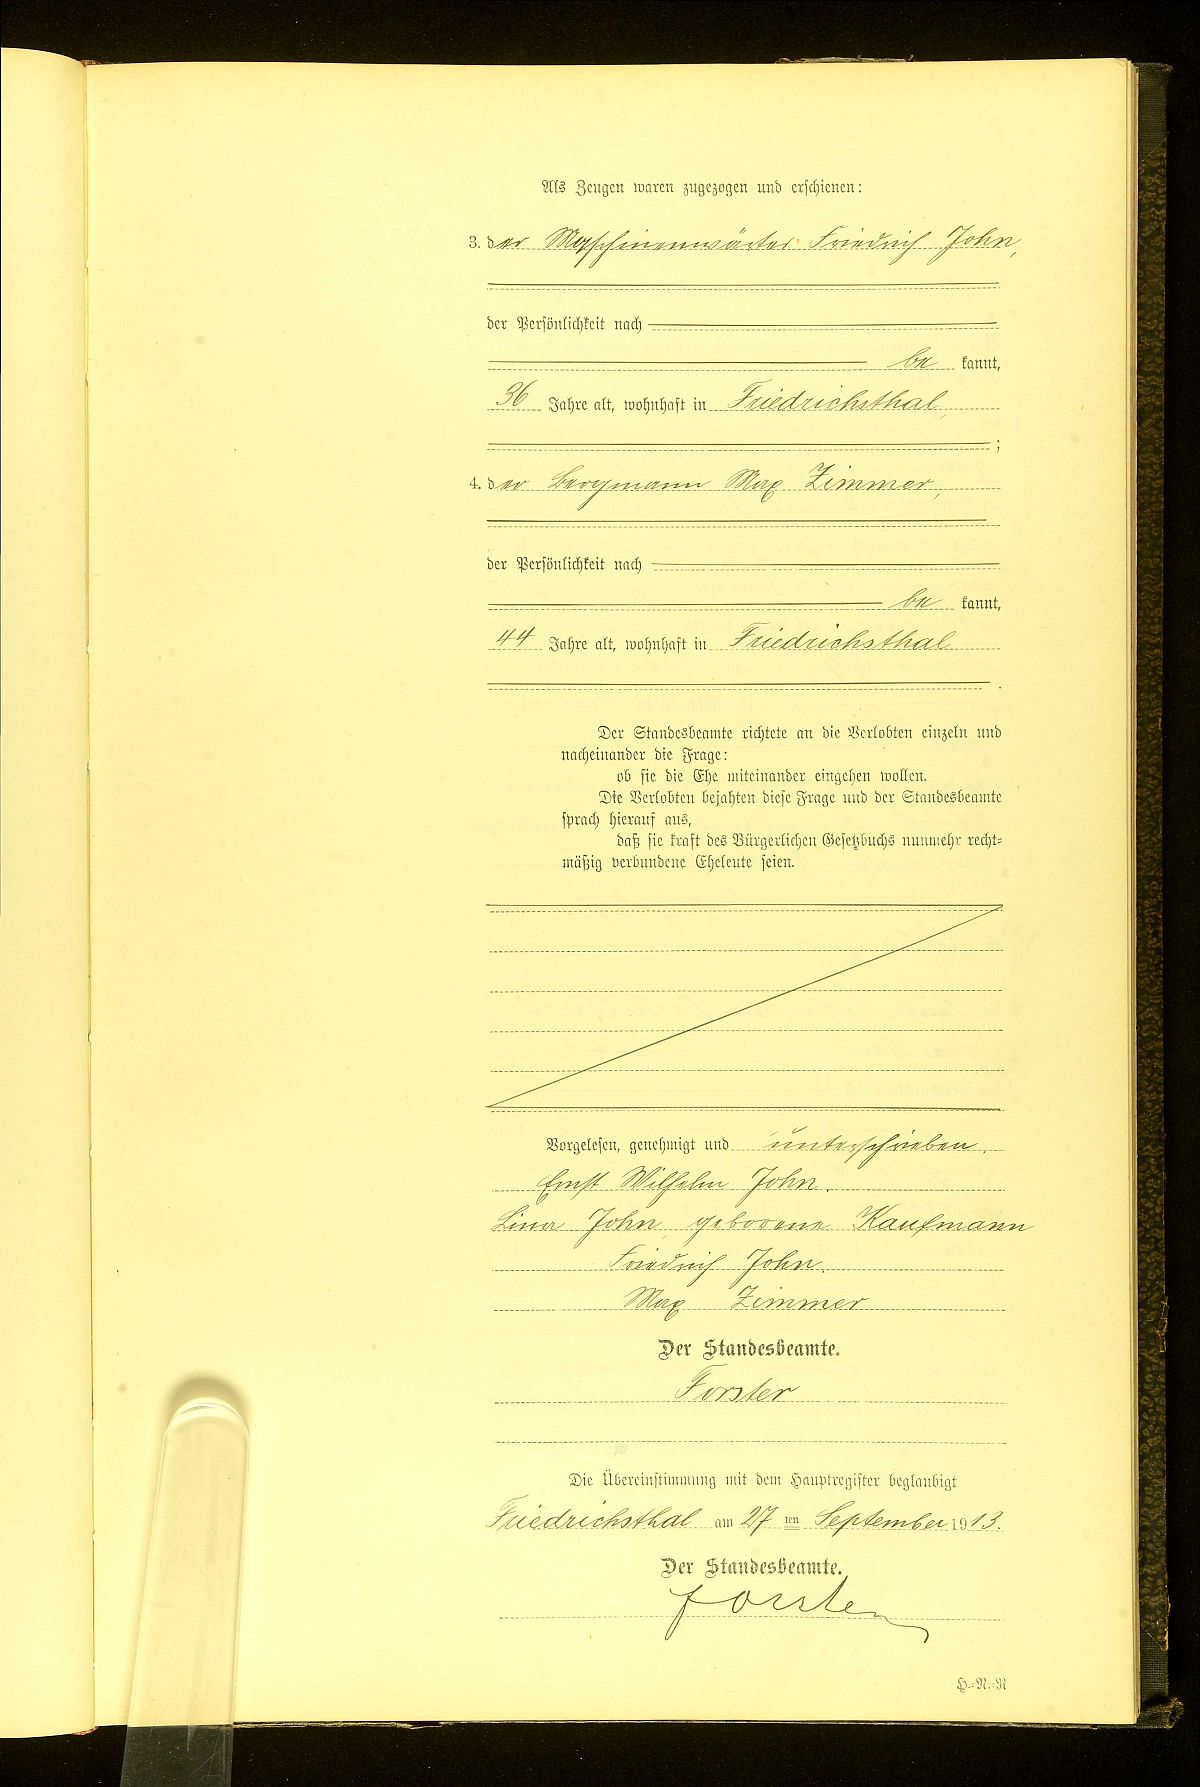 Als Zeugen waren zugezogen und erschienen:
3. der Maschinenwärter Friedrich John,
der Persönlichkeit nach
be kannt,
36 Jahre alt, wohnhaft in Friedrichsthal,
;
4. der Bergmann Max Zimmer,
der Persönlichkeit nach
be kannt,
44 Jahre alt, wohnhaft in Friedrichsthal
.
Der Standesbeamte richtete an die Verlobten einzeln und
nacheinander die Frage:
ob sie die Ehe miteinander eingehen wollen.
Die Verlobten bejahten diese Frage und der Standesbeamte
sprach hierauf aus,
daß sie kraft des Bürgerlichen Gesetzbuchs nunmehr recht-
mäßig verbundene Eheleute seien.
Vorgelesen, genehmigt und unterschrieben.
Ernst Wilhelm John.
Lina John, geborene Kaufmann
Friedrich John.
Max Zimmer
Der Standesbeamte.
Forster
Die Übereinstimmung mit dem Hauptregister beglaubigt
Friedrichsthal am 27 ten September 1913.
Der Standesbeamte.
Forster
H.-N.-R